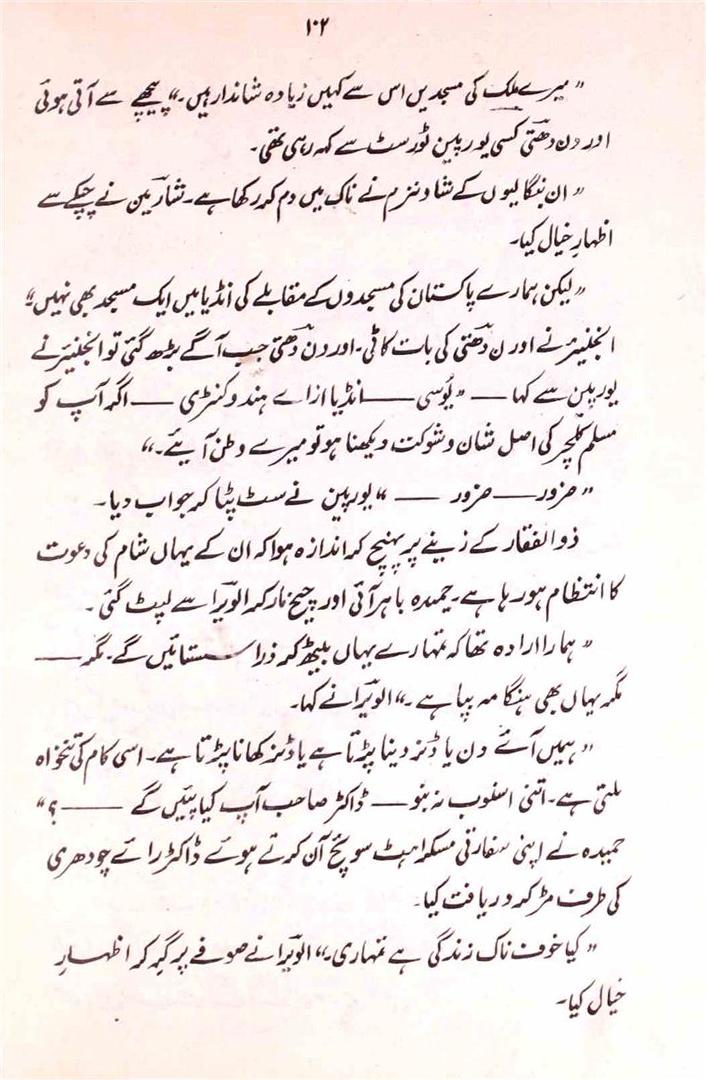 ۱۰۲
" میرے ملک کی مسجدیں اس سے کہیں زیادہ شاندار ہیں۔" پیچھے سے آتی ہوئی
اور دن دھتی کسی یورپین ٹورسٹ سے کہہ رہی تھی۔
" ان بنگالیوں کے شاونزم نے ناک میں دم کر رکھا ہے۔ نثار مین نے چپکے سے
اظہارِ خیال کیا۔
" لیکن ہمارے پاکستان کی مسجدوں کے مقابلے کی انڈیا میں ایک مسجد بھی نہیں۔"
انجنیئر نے اور ن دھتی کی بات کاٹی۔ اور دن دھتی جب آگے بڑھ گئی تو انجنیئر نے
یورپین سے کہا —— " یُوسی —— انڈیا از اے ہندو کنٹری —— اگر آپ کو
مسلم کلچر کی اصل شان و شوکت دیکھنا ہو تو میرے وطن آیئے۔"
" حزور —— حزور —— " یورپین نے سٹ پٹا کر جواب دیا۔
ذوالفقار کے زینے پر پہنچ کر اندازہ ہوا کہ ان کے یہاں شام کی دعوت
کا انتظام ہو رہا ہے۔ حمیدہ باہر آئی اور چیخ مار کر الویرا سے لپٹ گئی۔
" ہمارا ارادہ تھا کہ تمہارے یہاں بیٹھ کر ذرا سستائیں گے۔ مگر ——
مگر یہاں بھی ہنگامہ بپا ہے۔" الویرا نے کہا۔
" ہمیں آئے دن یا ڈنر دینا پڑتا ہے یا ڈنر کھانا پڑتا ہے۔ اسی کام کی تنخواہ
ملتی ہے۔ اتنی اسنوب نہ بنو —— ڈاکٹر صاحب آپ کیا پئیں گے —— ؟"
حمیدہ نے اپنی سفارتی مسکراہٹ سوئچ آن کرتے ہوئے ڈاکٹر رائے چودھری
کی طرف مڑ کر دریافت کیا۔
" کیا خوف ناک زندگی ہے تمہاری۔" الویرا نے صوفے پر گر کر اظہارِ
خیال کیا۔